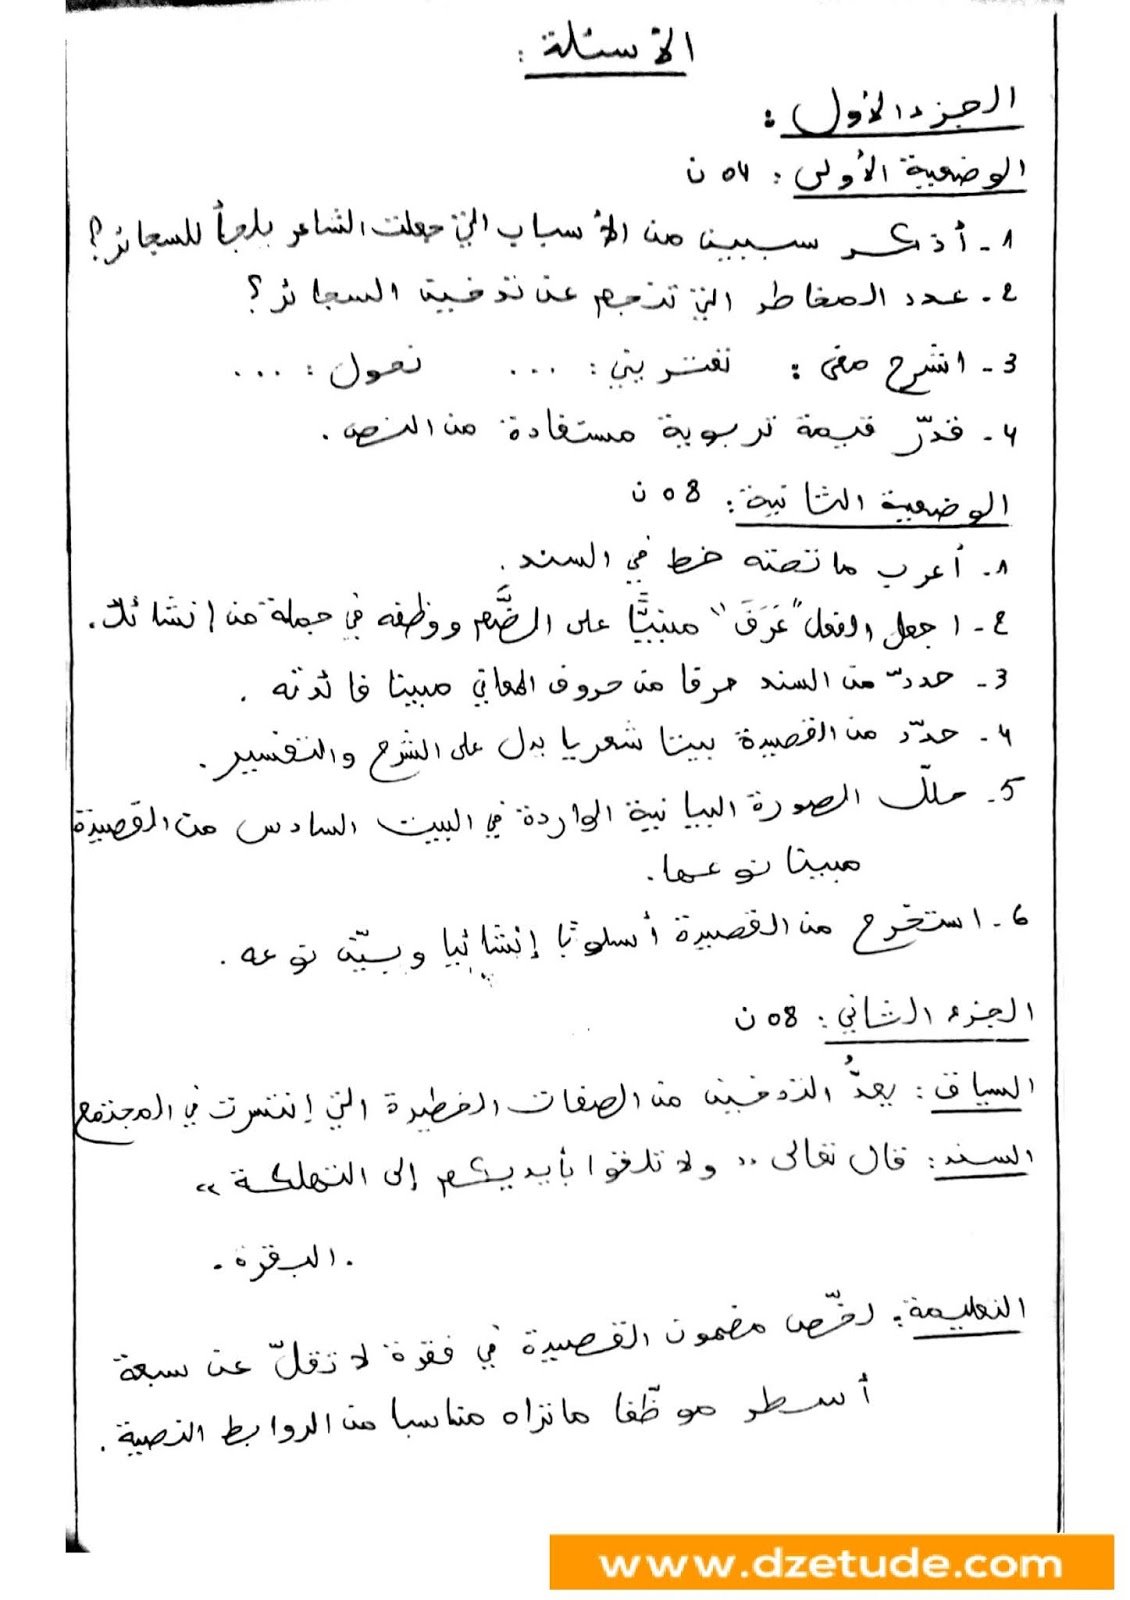 الأسئلة :
الجزء الأول :
الوضعية الأولى : 04 ن
1 - أذكر سببين من الأسباب التي جعلت الشاعر يلجأ للسجائر؟
2 - عدد المخاطر التي تنجم عن تدخين السجائر؟
3 - اشرح معنى : تعتريني : ... تعول : ...
4 - قدّر قيمة تربوية مستفادة من النص .
الوضعية الثانية : 08 ن
1 - أعرب ما تحته خط في السند .
2 - اجعل الفعل "عَرَفَ" مبنيًّا على الضَّم ووظفه في جملة من إنشائك .
3 - حدّد من السند حرفا من حروف المعاني مبينا فائدته .
4 - حدّد من القصيدة بيتا شعريا يدل على الشرح والتفسير .
5 - حلّل الصورة البيانية الواردة في البيت السادس من القصيدة
مبينا نوعها .
6 - استخرج من القصيدة أسلوبًا إنشائيا وبيّن نوعه .
الجزء الثاني : 08 ن
السياق : يعدُّ التدخين من الصفات الخطيرة التي إنتشرت في المجتمع
السند : قال تعالى « ولا تلقوا بأيديكم إلى التهلكة »
. البقرة .
التعليمة : لخّص مضمون القصيدة في فقرة لا تقلّ عن سبعة
أسطر موظّفا ما تراه مناسبا من الروابط النصية .
www.dzetude.com